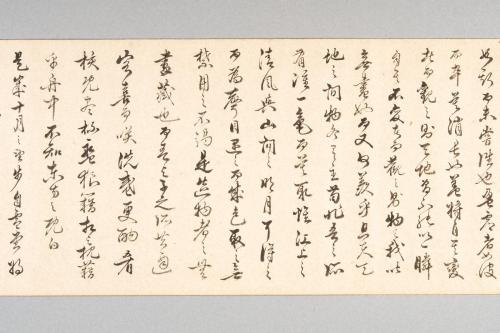 如斯而未嘗往也盈虛者如彼
而卒莫消長也蓋將自其變
者而觀之則天地曾不能以一瞬
自其不變者而觀之則物與我皆
無盡也而又何羨乎且夫天
地之間物各有主苟非吾之所
有雖一毫而莫取惟江上之
清風與山間之明月耳得之
而為聲目遇之而成色取之無
禁用之不竭是造物者之無
盡藏也而吾與子之所共適
客喜而笑洗盞更酌肴
核既盡杯盤狼籍相與枕藉
乎舟中不知東方之既白
是歲十月之望步自雪堂將